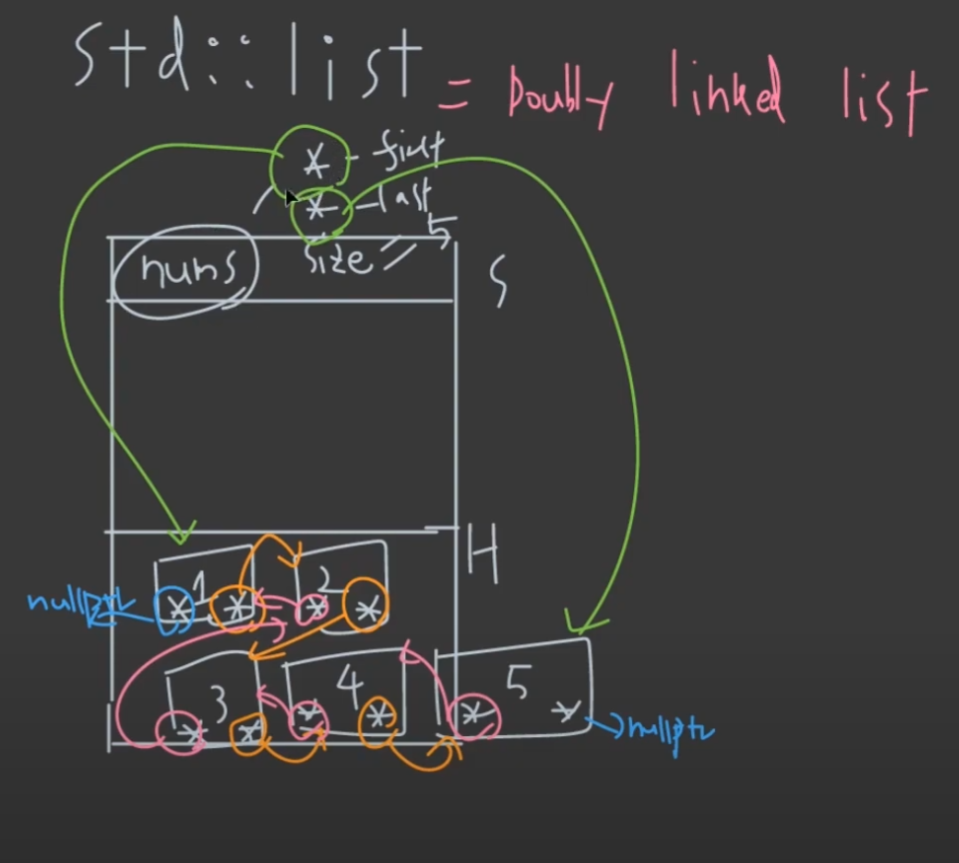 std::list = Doubly linked list
* - first
* - last
nums size = 5 S
H
1 2
nullptr * * * *
3 4 5
* * * * * * nullptr